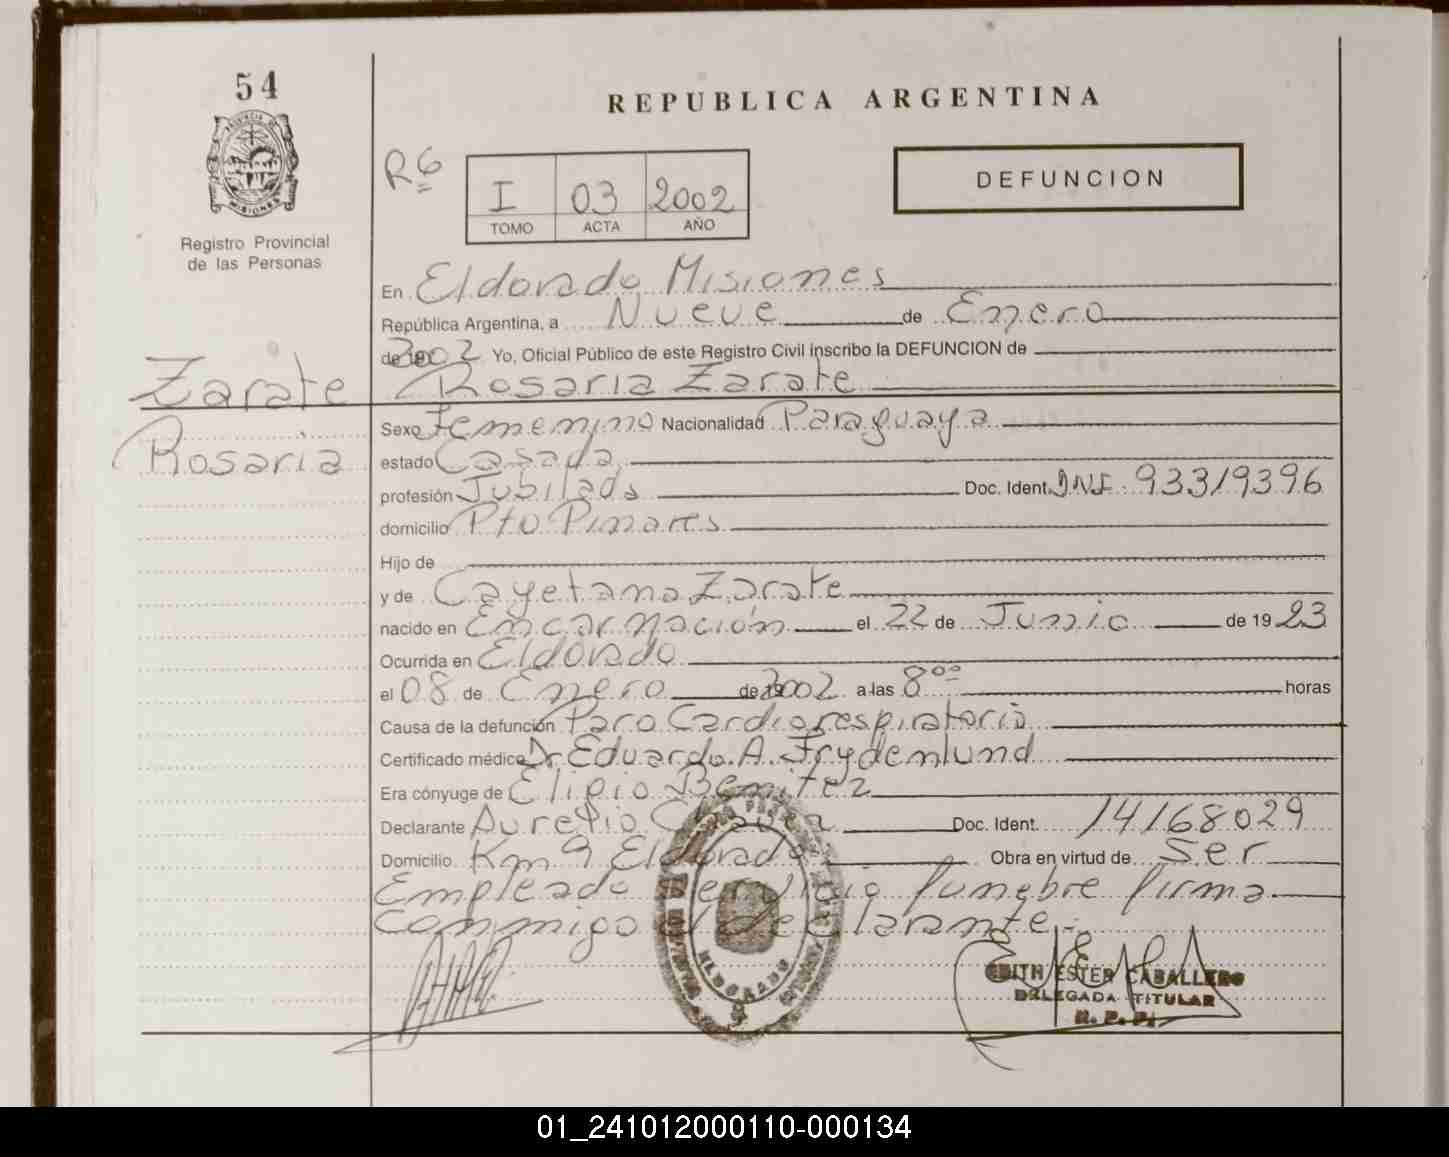 54
PROVINCIA DE MISIONES
Registro Provincial
de las Personas
REPUBLICA ARGENTINA
R6
I 03 2002
TOMO ACTA AÑO
DEFUNCION
En Eldorado Misiones
República Argentina, a Nueve de Enero
de 2002 Yo, Oficial Público de este Registro Civil inscribo la DEFUNCION de
Zarate Rosaria Zarate
Sexo Femenino Nacionalidad Paraguaya
Rosaria
estado Casada
profesión Jubilada Doc. Ident. DNI. 93319396
domicilio Pto Pinares
Hijo de
y de Cayetana Zarate
nacido en Encarnación el 22 de Junio de 1923
Ocurrida en Eldorado
el 08 de Enero de 2002 a las 8°° horas
Causa de la defunción Paro Cardiorespiratorio
Certificado médico Dr Eduardo A. Frydenlund
Era cónyuge de Eligio Benitez
Declarante Aurelio Doc. Ident. 14168029
Domicilio Km 9 Eldorado Obra en virtud de Ser
Empleado Servicio funebre firma
conmigo el declarante.-
ELDORADO
EDITH ESTER CABALLERO
DELEGADA TITULAR
R. P. P.
01_241012000110-000134